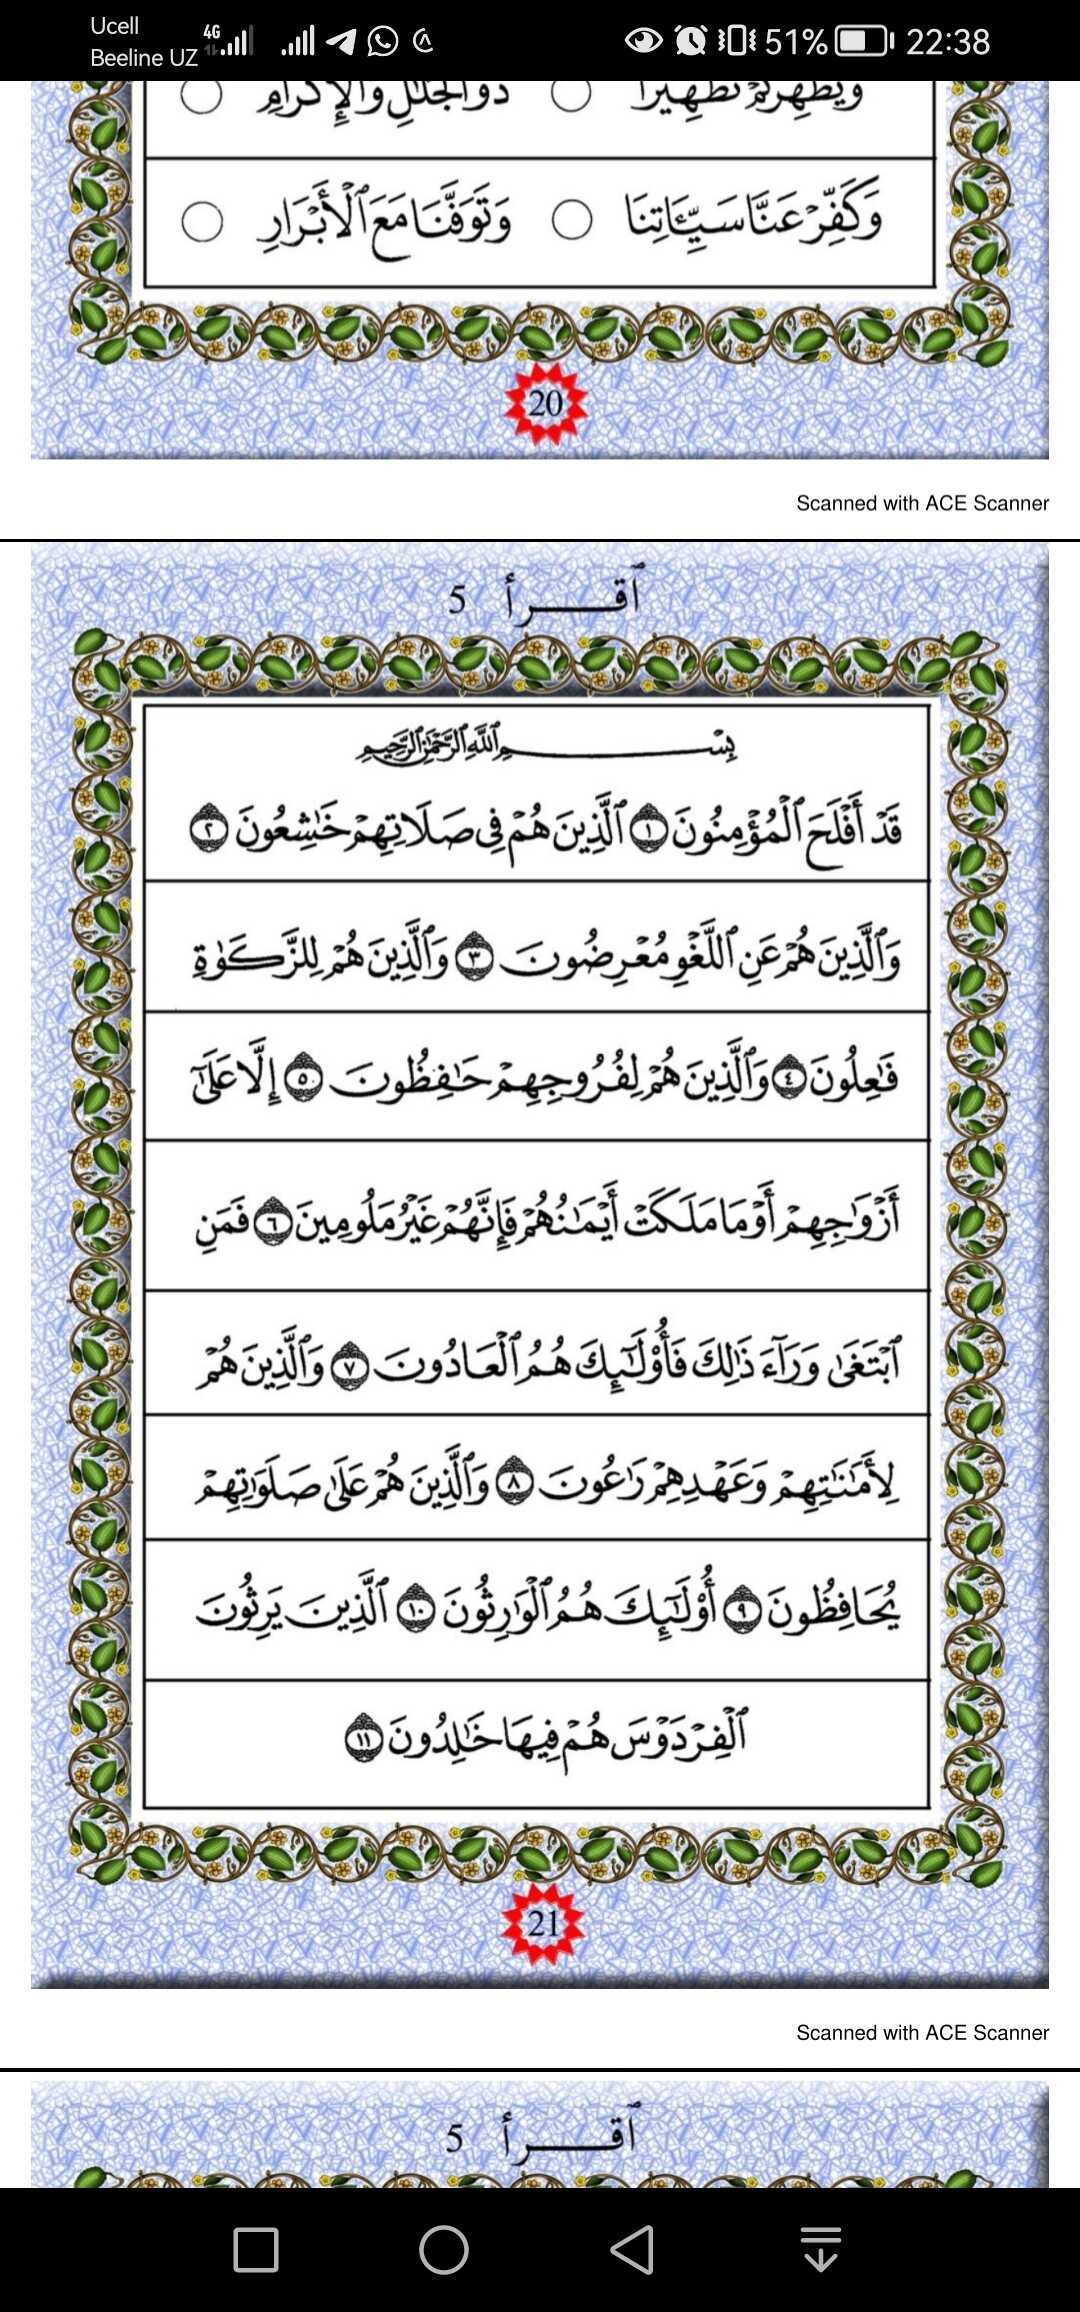 Ucell
Beeline UZ
4G
51%
22:38
وَيُطَهِّرَكُمْ تَطْهِيرًا ○ ذُو الْجَلَالِ وَالْإِكْرَامِ ○
وَكَفِّرْ عَنَّا سَيِّـَٔاتِنَا ○ وَتَوَفَّنَا مَعَ ٱلْأَبْرَارِ ○
20
Scanned with ACE Scanner
ٱقـــرأ 5
بِسْمِ ٱللَّهِ ٱلرَّحْمَٰنِ ٱلرَّحِيمِ
قَدْ أَفْلَحَ ٱلْمُؤْمِنُونَ ١ ٱلَّذِينَ هُمْ فِى صَلَاتِهِمْ خَٰشِعُونَ ٢
وَٱلَّذِينَ هُمْ عَنِ ٱللَّغْوِ مُعْرِضُونَ ٣ وَٱلَّذِينَ هُمْ لِلزَّكَوٰةِ
فَٰعِلُونَ ٤ وَٱلَّذِينَ هُمْ لِفُرُوجِهِمْ حَٰفِظُونَ ٥ إِلَّا عَلَىٰٓ
أَزْوَٰجِهِمْ أَوْ مَا مَلَكَتْ أَيْمَٰنُهُمْ فَإِنَّهُمْ غَيْرُ مَلُومِينَ ٦ فَمَنِ
ٱبْتَغَىٰ وَرَآءَ ذَٰلِكَ فَأُو۟لَٰٓئِكَ هُمُ ٱلْعَادُونَ ٧ وَٱلَّذِينَ هُمْ
لِأَمَٰنَٰتِهِمْ وَعَهْدِهِمْ رَٰعُونَ ٨ وَٱلَّذِينَ هُمْ عَلَىٰ صَلَوَٰتِهِمْ
يُحَافِظُونَ ٩ أُو۟لَٰٓئِكَ هُمُ ٱلْوَٰرِثُونَ ١٠ ٱلَّذِينَ يَرِثُونَ
ٱلْفِرْدَوْسَ هُمْ فِيهَا خَٰلِدُونَ ١١
21
Scanned with ACE Scanner
ٱقـــرأ 5